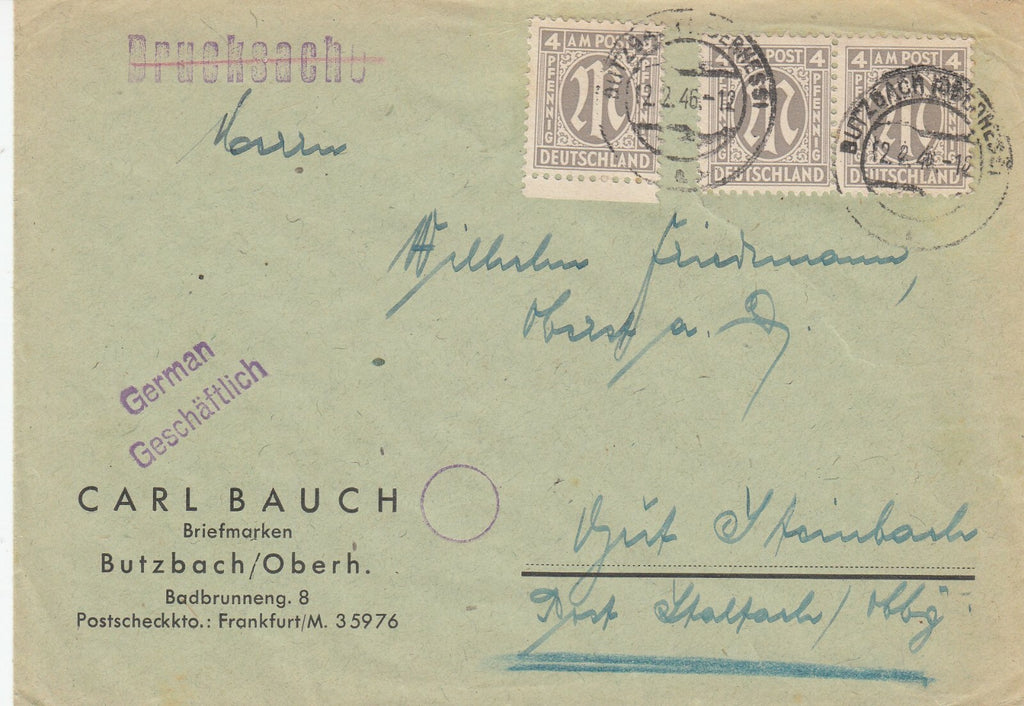 Drucksache
4 AM POST 4
PFENNIG PFENNIG
DEUTSCHLAND
4 AM POST 4
PFENNIG
DEUTSCHLAND
4 AM POST 4
PFENNIG
DEUTSCHLAND
BUTZBACH (OBERHESS)
12.2.46.-12
BUTZBACH (OBERHESS)
12.2.46.-12
Herrn
Wilhelm Friedmann,
Oberst a. D.
German
Geschäftlich
CARL BAUCH
Briefmarken
Butzbach/Oberh.
Badbrunneng. 8
Postscheckkto.: Frankfurt/M. 35976
Gut Steinbach
Post Staltach/Obbg.